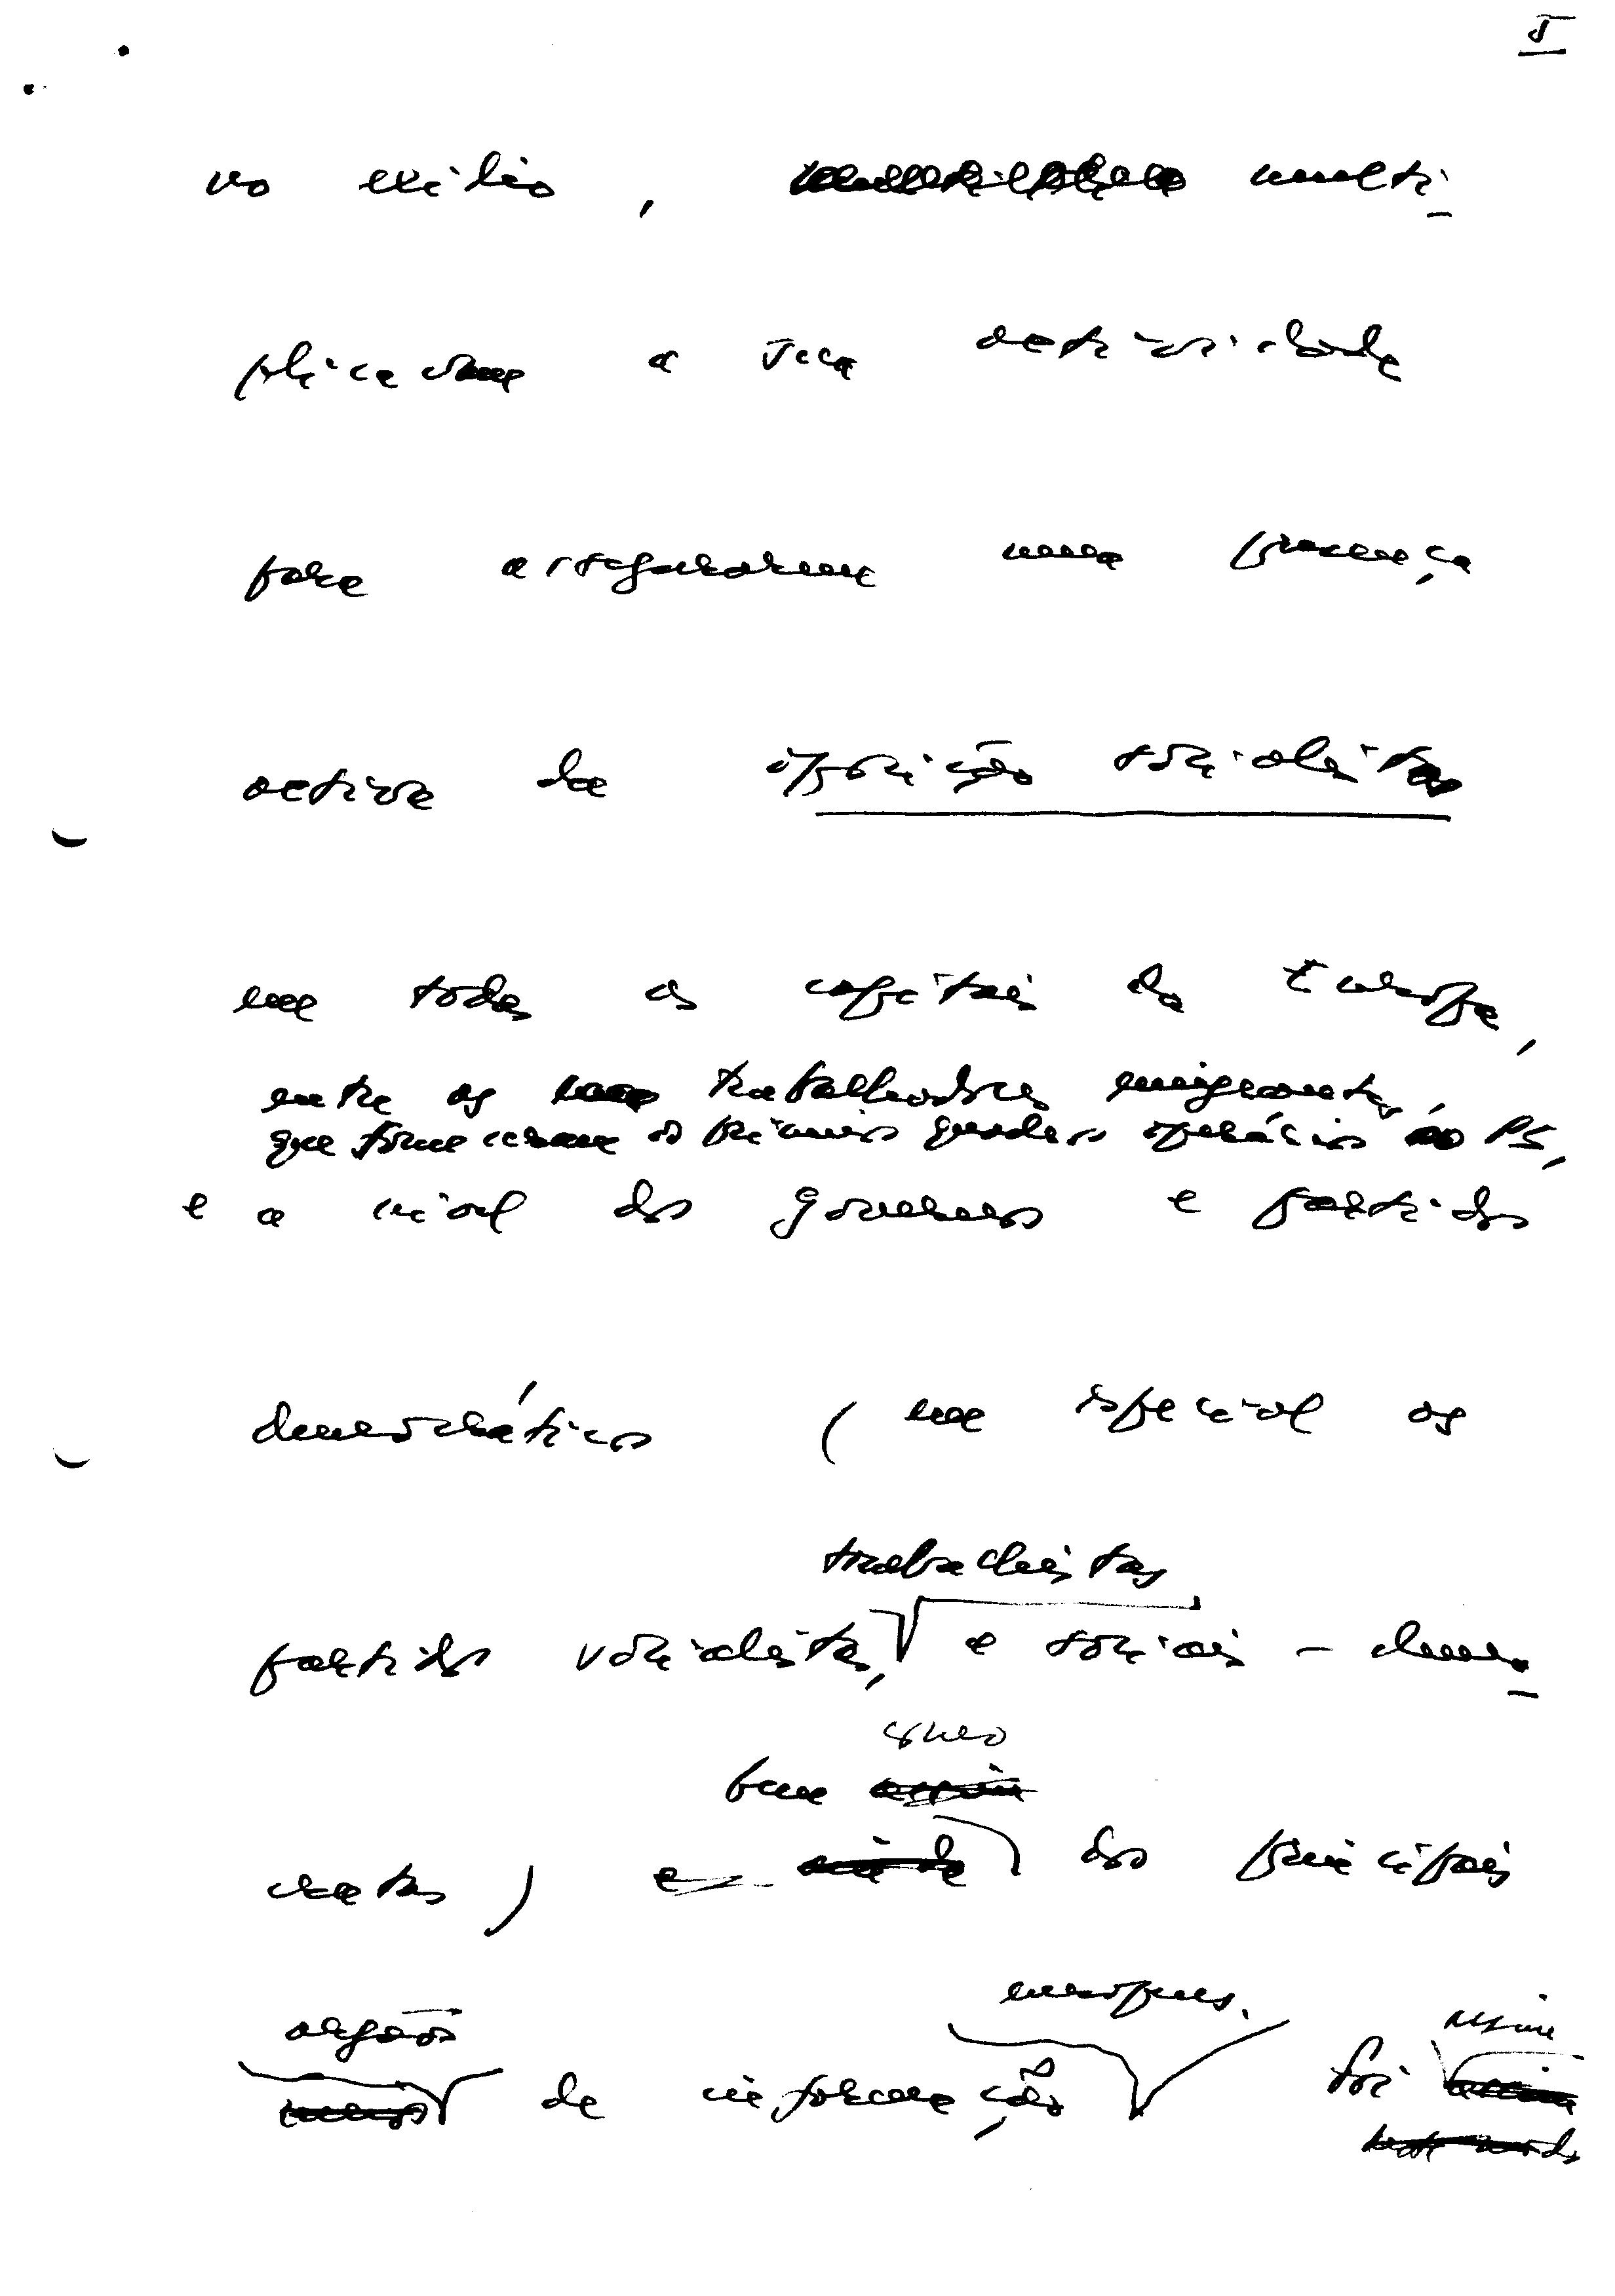 5
no exílio, multi-
plicavam a sua actividade
para assegurarem uma presença
activa da oposição socialista
em todas as capitais da Europa,
entre os trabalhadores emigrantes,
que forneceram os primeiros quadros operários ao PS,
e a nível dos governos e partidos
democráticos (em especial os
trabalhistas
partidos socialistas, e sociais-demo-
como
bem
cratas) dos principais
europeus.
orgãos assim
de informação Foi